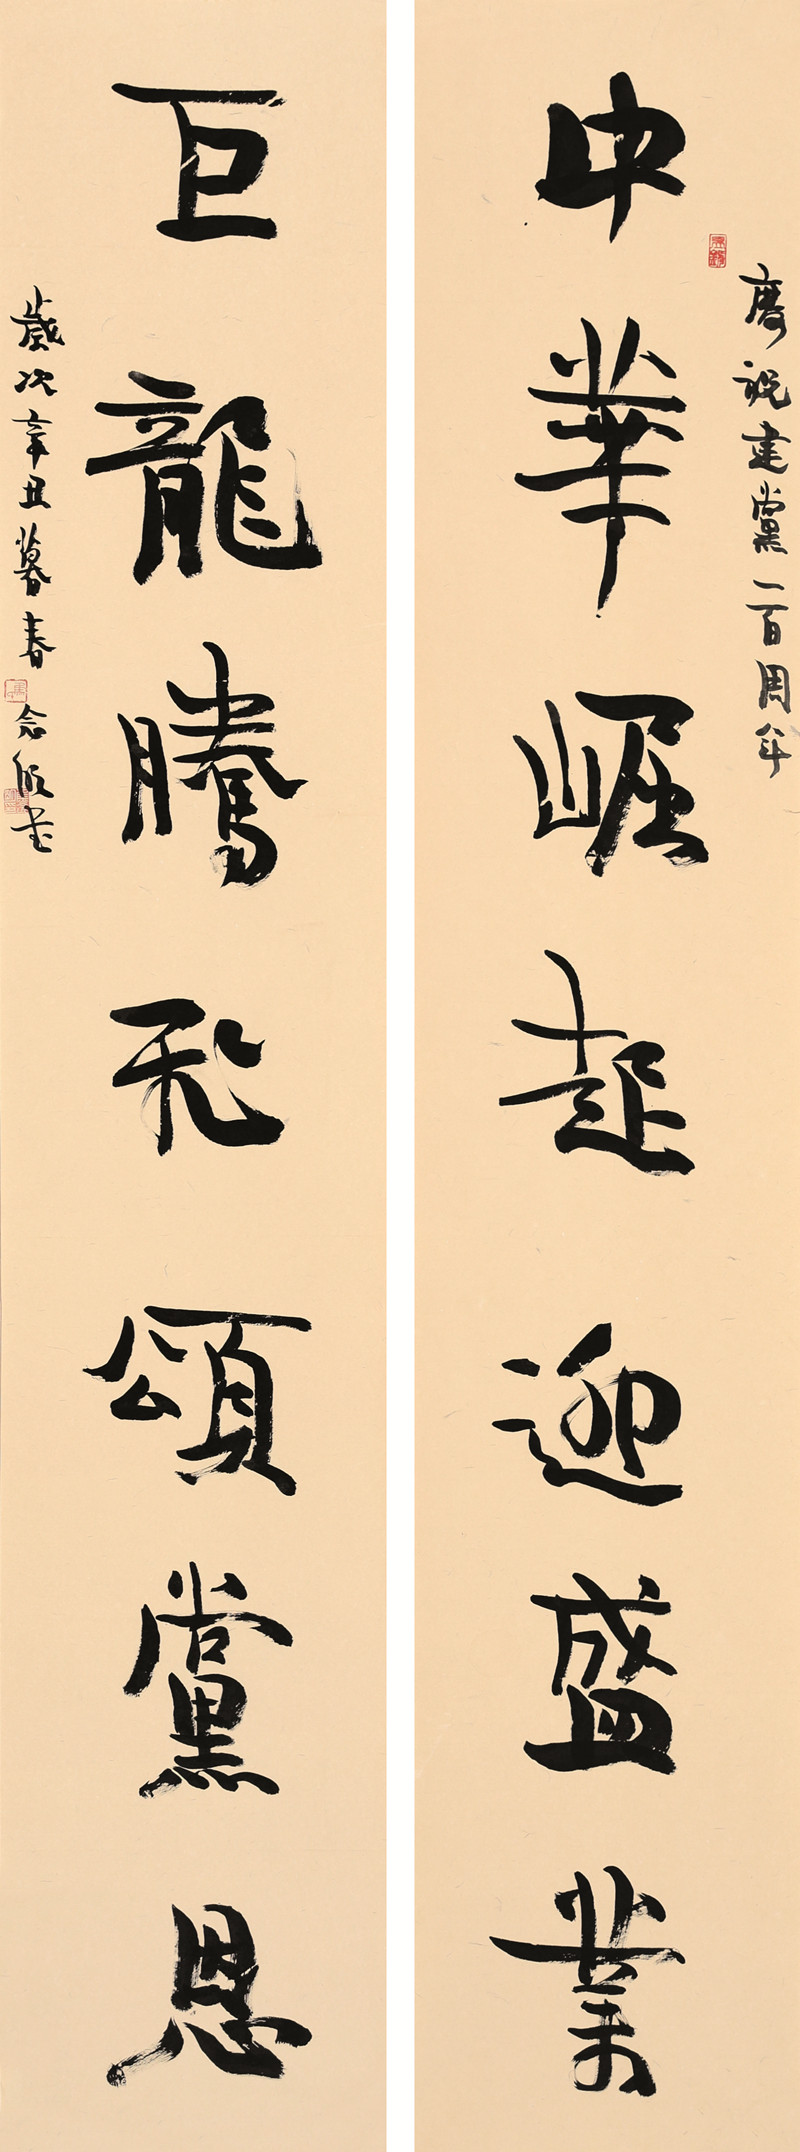 慶祝建黨一百周年
中華崛起迎盛業
巨龍騰飛頌黨恩
歲次辛丑暮春念欣書